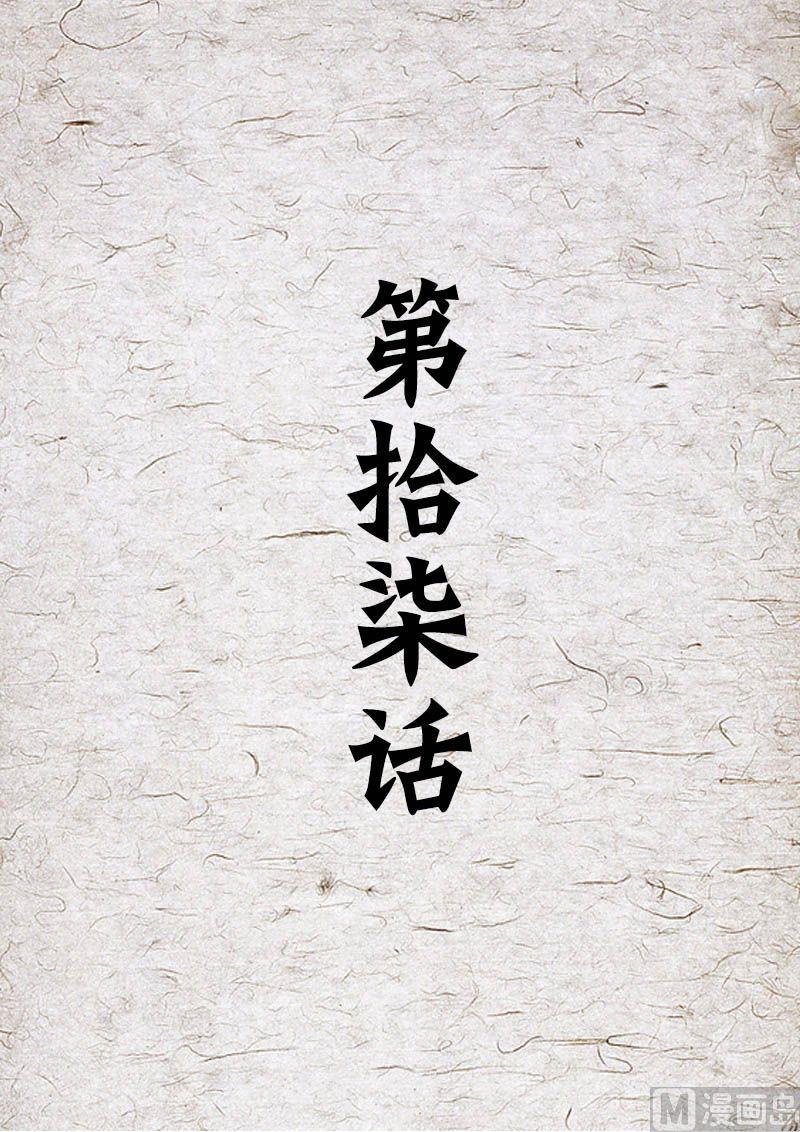 第拾柒话
M漫画岛